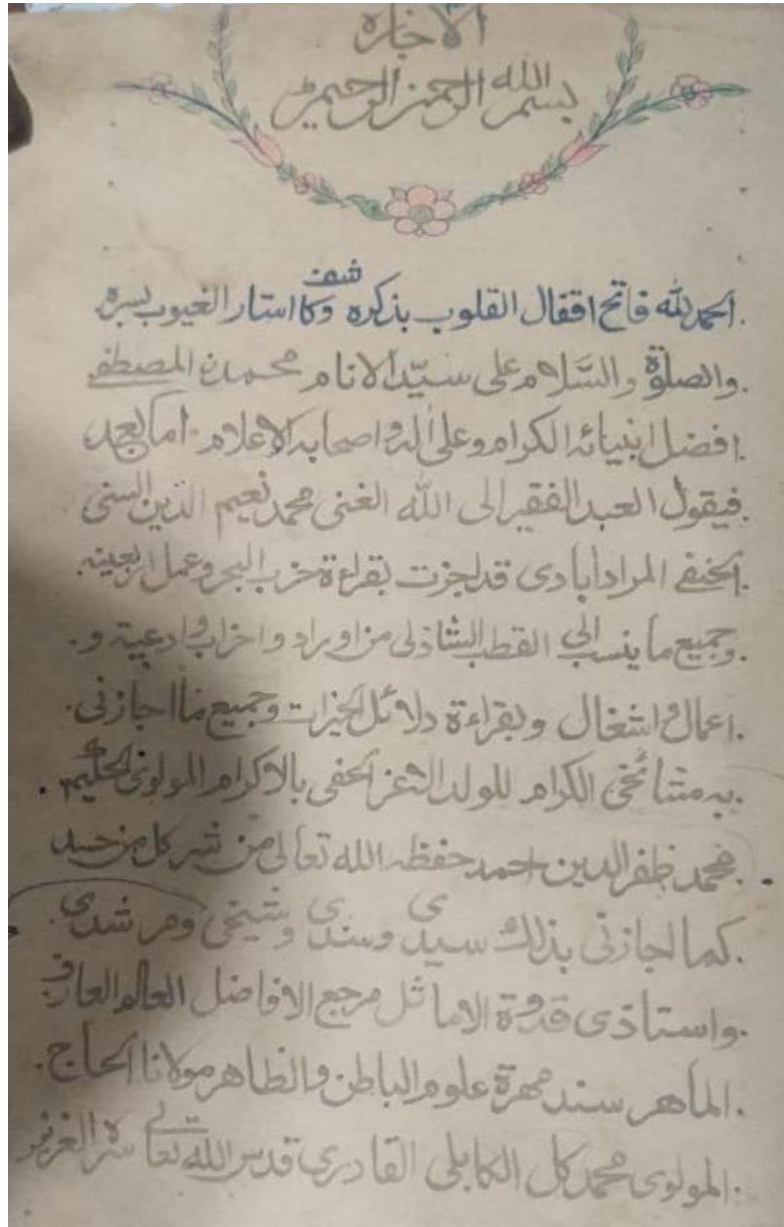 الاجازه
بسم الله الرحمن الرحيم
الحمد لله فاتح اقفال القلوب بذكره وكاشف استار الغيوب بسره
والصلوة والسلام على سيد الانام محمدن المصطفى
افضل انبيائه الكرام وعلى اله واصحابه الاعلام۔ اما بعد
فيقول العبد الفقير الى الله الغنى محمد نعيم الدين السنى
الحنفى المرادآبادى قد اجزت بقراءة حزب البحر وعمل اربعينه
وجميع ما ينسب الى القطب الشاذلى من اوراد واحزاب وادعية و
اعمال واشغال وبقراءة دلائل الخيرات وجميع ما اجازنى
به مشائخى الكرام للولد الاعز الحفى بالاكرام المولوى الحكيم
محمد ظفر الدين احمد حفظه الله تعالى من شر كل من حسد
كما اجازنى بذلك سيدى وسندى وشيخى ومرشدى
واستاذى قدوة الاماثل مرجع الافاضل العالم العارف
الماهر سند مهرة علوم الباطن والظاهر مولانا الحاج
المولوى محمد كل الكابلى القادرى قدس الله تعالى سره العزيز